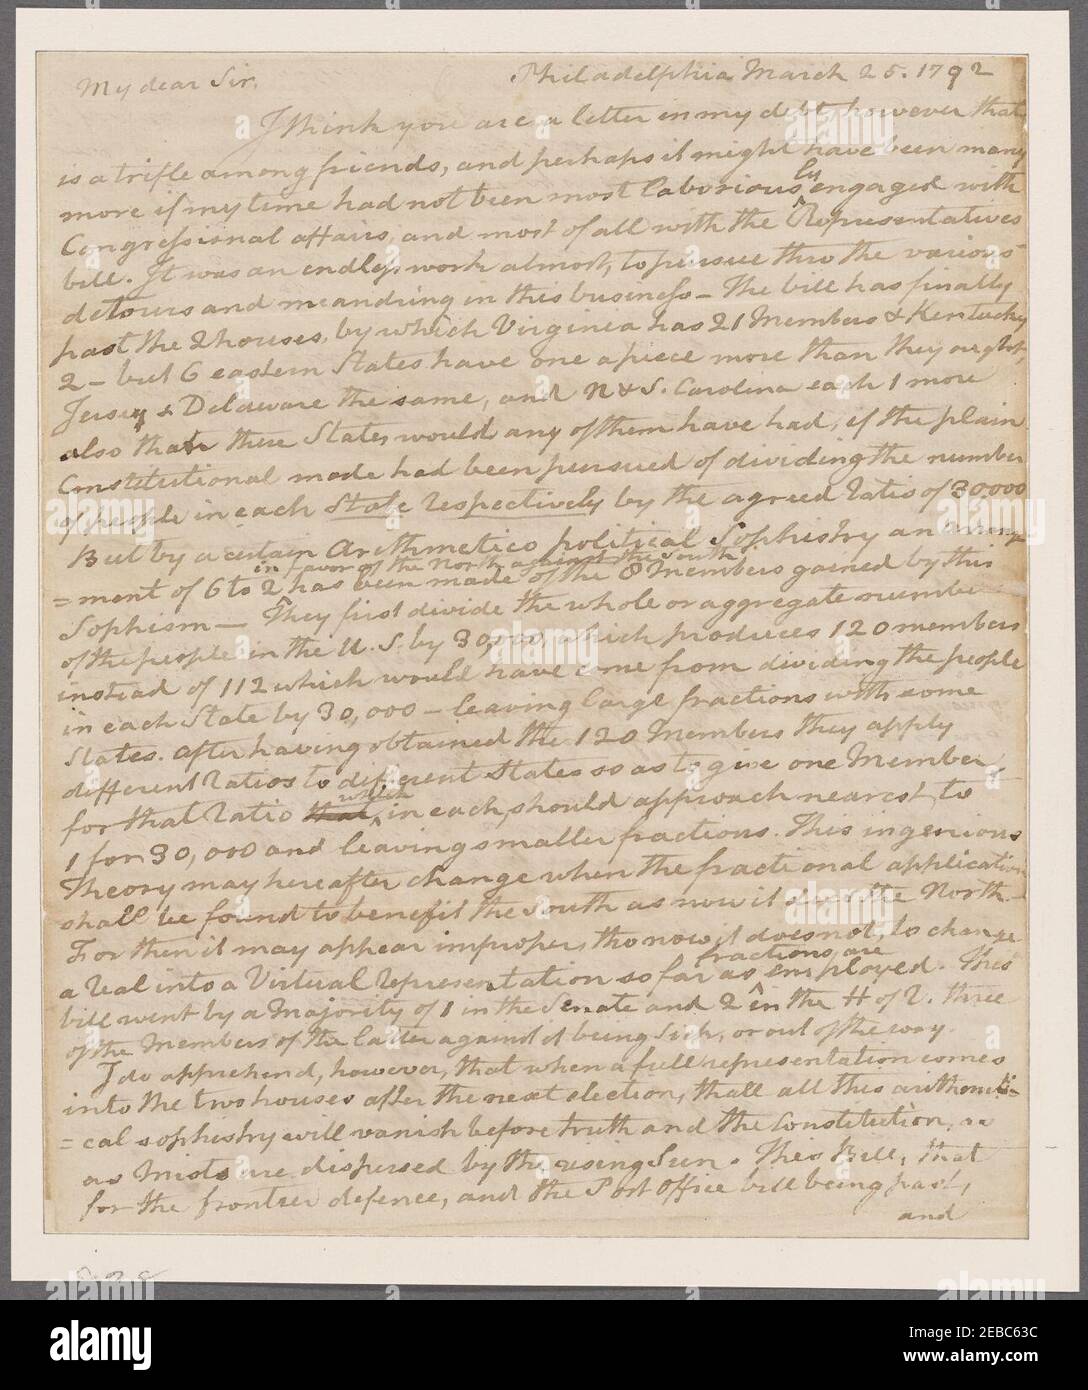 My dear Sir,
Philadelphia March 25. 1792
I think you are a letter in my debt, however that
is a trifle among friends, and perhaps it might have been many
more if my time had not been most laboriously engaged with
Congressional affairs, and most of all with the Representatives
bill. It was an endless work almost, to pursue thro the various
detours and meandring in this business — The bill has finally
past the 2 houses, by which Virginia has 21 Members & Kentucky
2 — but 6 eastern States have one a piece more than they ought,
Jersey & Delaware the same, and N & S. Carolina each 1 more
also than these States would any of them have had, if the plain
Constitutional mode had been pursued of dividing the number
of people in each State respectively by the agreed ratio of 30,000
But by a certain Arithmetico political Sophistry an arrange
in favor of the North against the South
=ment of 6 to 2 has been made of the 8 Members gained by this
Sophism — They first divide the whole or aggregate number
of the people in the U. S. by 30,000, which produces 120 members
instead of 112 which would have come from dividing the people
in each State by 30,000 — leaving large fractions with some
States. after having obtained the 120 Members they apply
different ratios to different States so as to give one Member
for that ratio that which in each should approach nearest to
1 for 30,000 and leaving smaller fractions. This ingenious
Theory may hereafter change when the fractional application
shall be found to benefit the South as now it does the North —
For then it may appear improper, tho now it does not, to change
a real into a Virtual representation so far as fractions are employed. This
bill went by a Majority of 1 in the Senate and 2 in the H of R. three
of the Members of the latter against it being sick, or out of the way.
I do apprehend, however, that when a full representation comes
into the two houses after the next election, that all this arithmeti=
=cal sophistry will vanish before truth and the Constitution,
as Mists are dispersed by the rising Sun. This Bill, that
for the frontier defence, and the Post Office bill being past,
and
alamy
Image ID: 2EBC63C
www.alamy.com